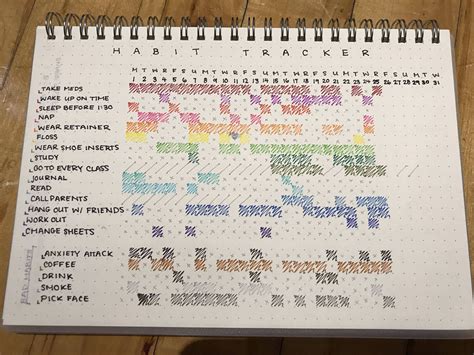 HABIT TRACKER
M T W R F S U M T W R F S U M T W R F S U M T W R F S U M T W
1 2 3 4 5 6 7 8 9 10 11 12 13 14 15 16 17 18 19 20 21 22 23 24 25 26 27 28 29 30 31
TAKE MEDS
WAKE UP ON TIME
SLEEP BEFORE 1:30
NAP
WEAR RETAINER
FLOSS
WEAR SHOE INSERTS
STUDY
GO TO EVERY CLASS
JOURNAL
READ
CALL PARENTS
HANG OUT W/ FRIENDS
WORK OUT
CHANGE SHEETS
BAD HABITS
ANXIETY ATTACK
COFFEE
DRINK
SMOKE
PICK FACE